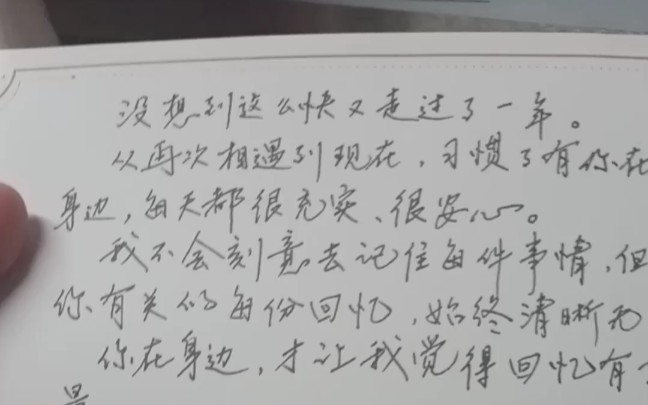 没想到这么快又走过了一年。
从再次相遇到现在，习惯了有你在
身边，每天都很充实、很安心。
我不会刻意去记住每件事情，但
你有关的每份回忆，始终清晰
你在身边，才让我觉得回忆有